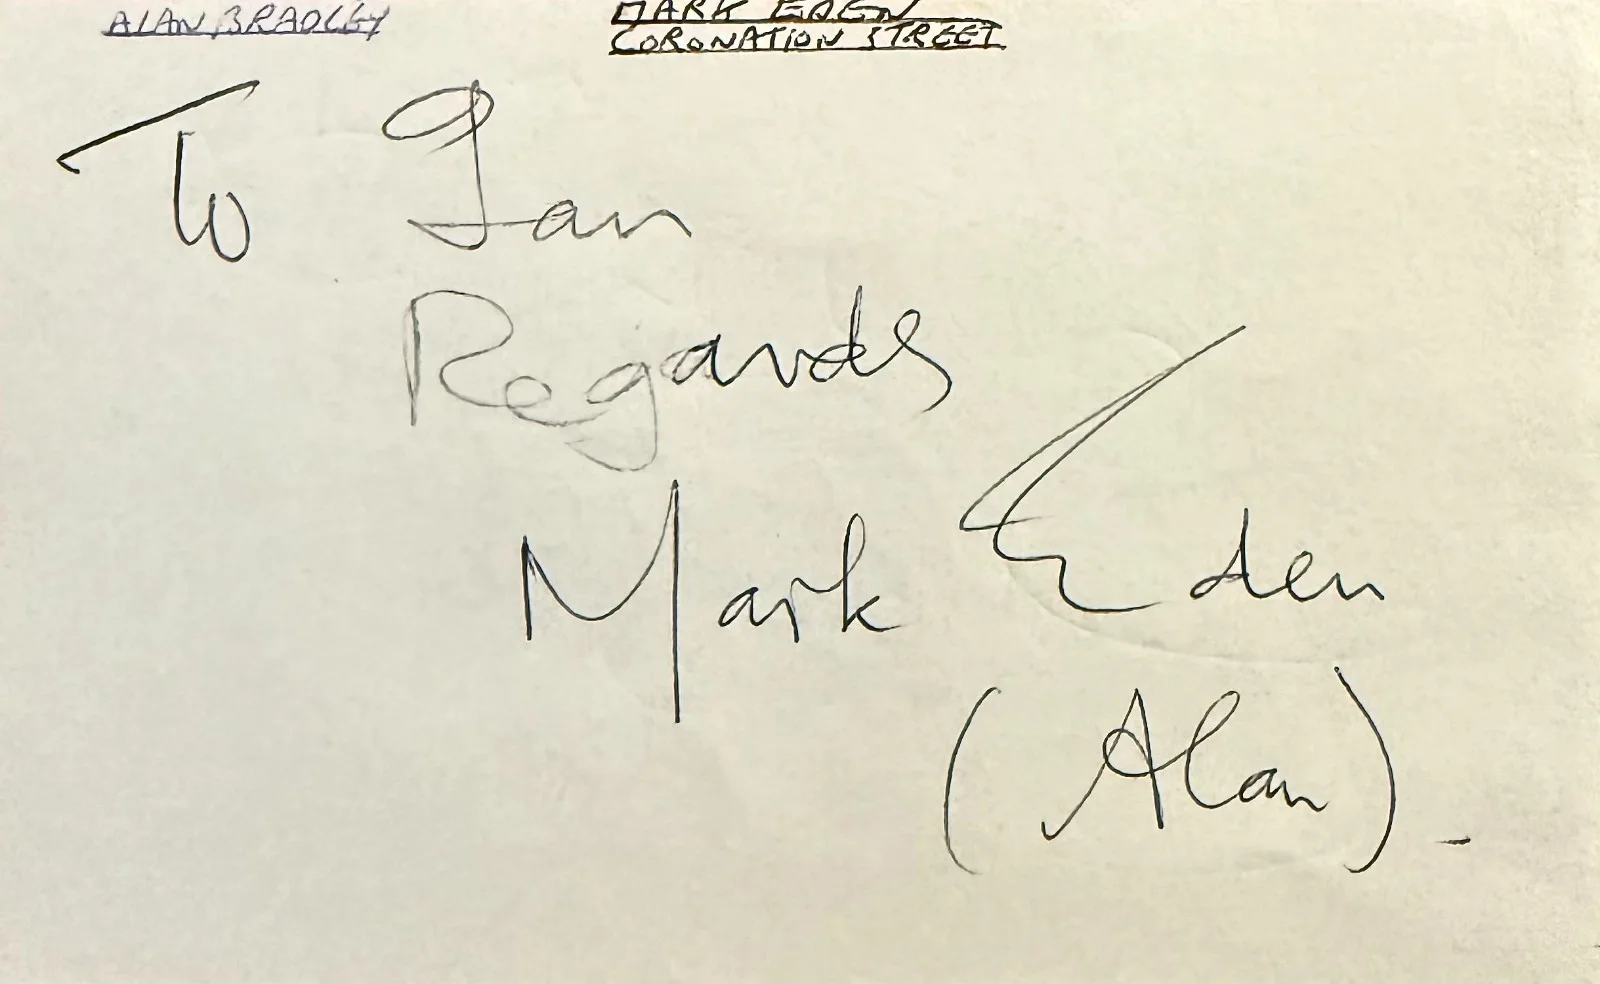 ALAN BRADLEY
MARK EDEN
CORONATION STREET
To Ian
Regards
Mark Eden
(Alan).